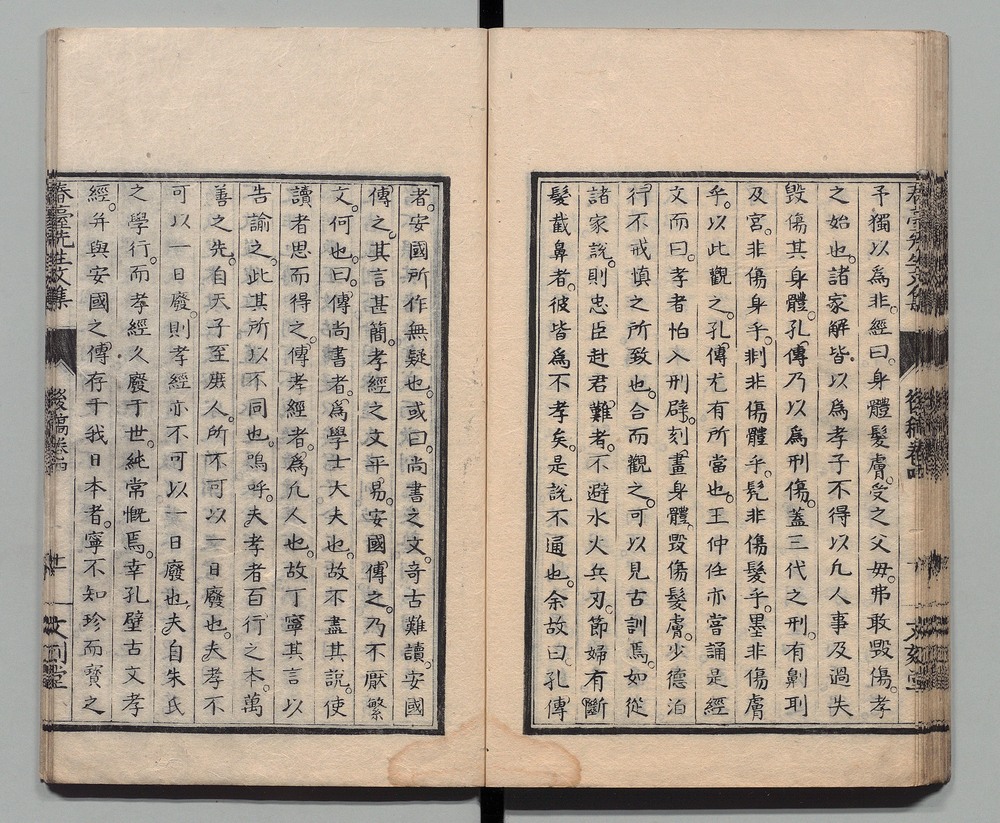 予獨以為非。經曰。身體髮膚。受之父毋。弗敢毀傷。孝
之始也。諸家解皆。以為孝子不得以凢人事及過失
毀傷其身體。孔傳乃以為刑傷。蓋三代之刑。有劓刵
及宮。非傷身乎。剕非傷體乎。髡非傷髮乎。墨非傷膚
乎。以此觀之。孔傳尤有所當也。王仲任亦嘗誦是經
文而曰。孝者怕入刑辟。刻畫身體。毀傷髮膚。少德泊
行。不戒慎之所致也。合而觀之。可以見古訓焉。如從
諸家說。則忠臣赴君難者。不避水火兵刃。節婦有斷
髮截鼻者。彼皆為不孝矣。是說不通也。余故曰。孔傳
者。安國所作無疑也。或曰。尚書之文。奇古難讀。安國
傳之。其言甚簡。孝經之文平易。安國傳之。乃不厭繁
文。何也。曰。傳尚書者。為學士大夫也。故不盡其說。使
讀者思而得之。傳孝經者。為凢人也。故丁寧其言。以
告諭之。此其所以不同也。嗚呼。夫孝者百行之本。萬
善之先。自天子至庻人。所不可以一日廢也。夫孝不
可以一日廢。則孝經亦不可以一日廢也。夫自朱氏
之學行。而孝經久廢于世。純常慨焉。幸孔壁古文孝
經。并與安國之傳。存于我日本者。寧不知珍而寳之
春臺先生文集
後稿卷四
十一
文刻堂